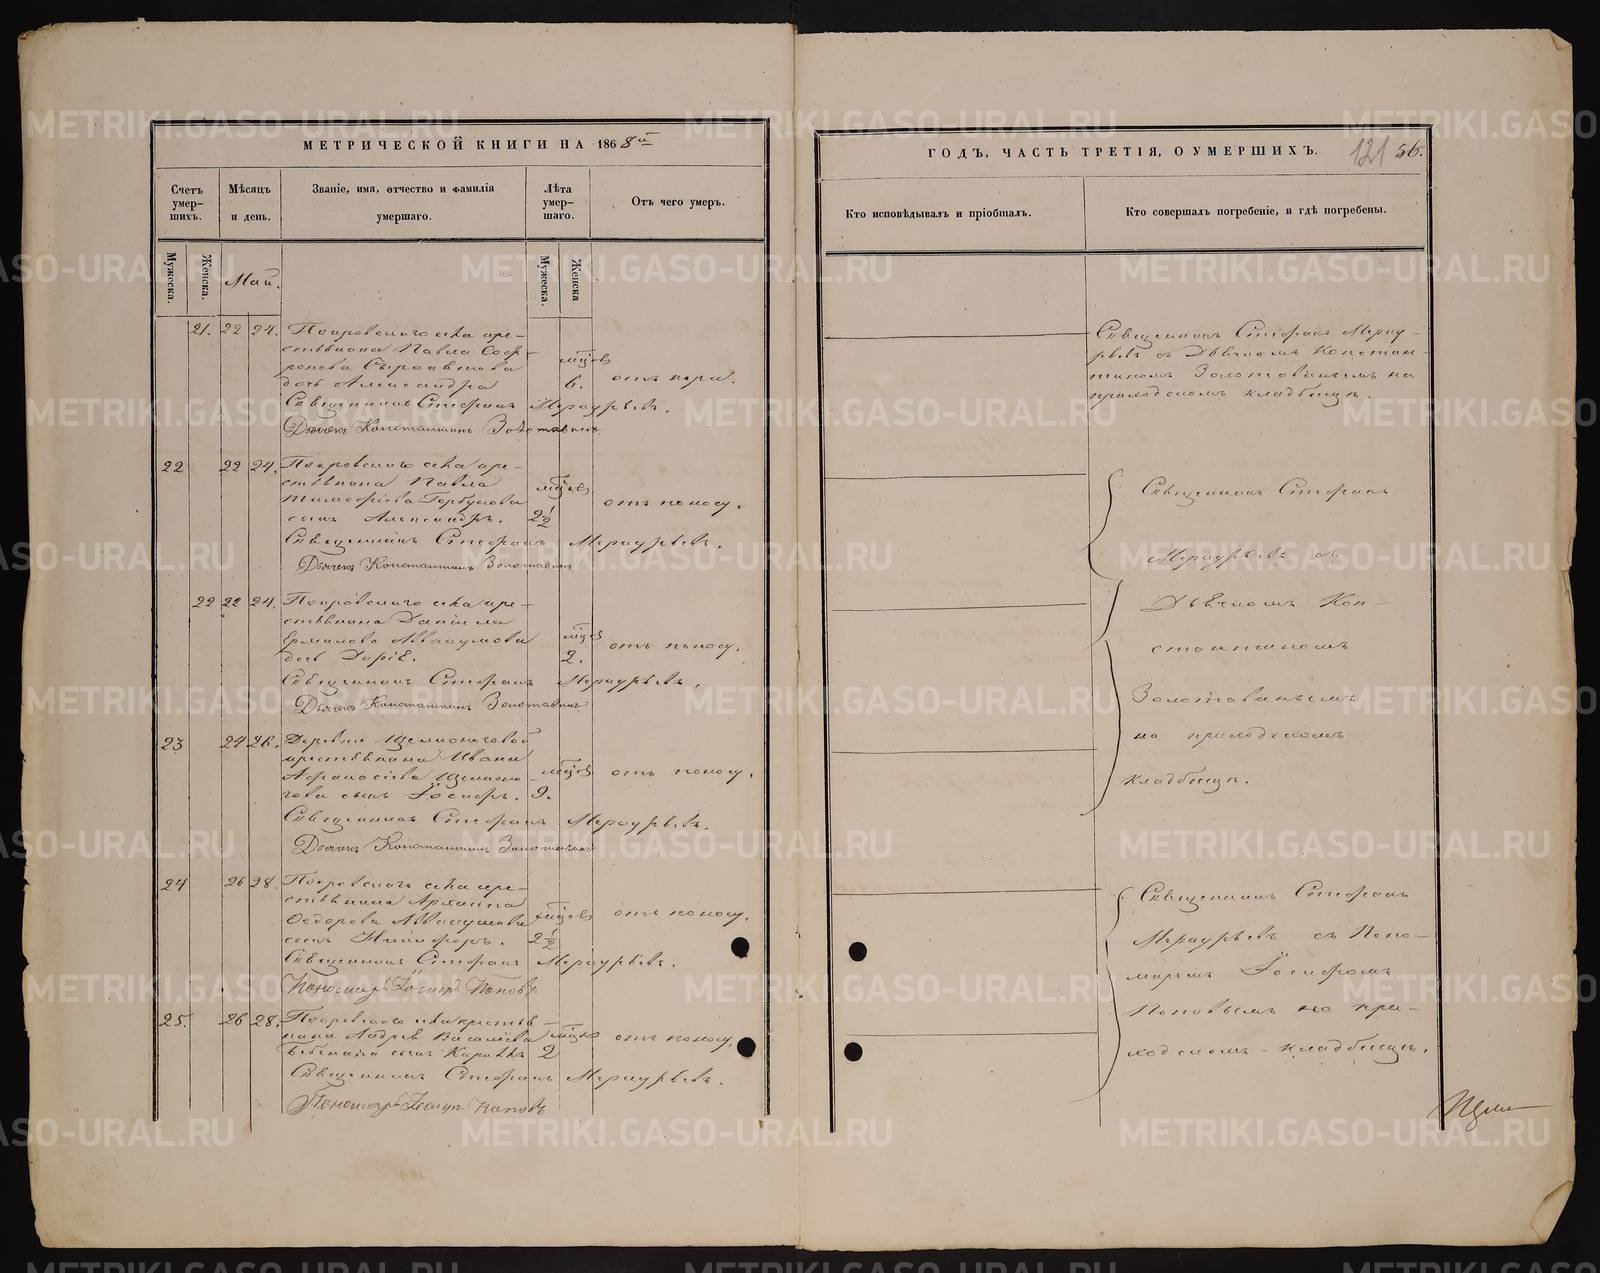 МЕТРИЧЕСКОЙ КНИГИ НА 1868й
Счетъ умер-шихъ.
Мѣсяцъ и день.
Званіе, имя, отчество и фамилія умершаго.
Лѣта умер-шаго.
Отъ чего умеръ.
Мужеска.
Женска.
Май.
Мужеска.
Женска
21. 22 24. Покровскаго села кре-
стьянина Павла Софр-
онова
дочь Александра
мѣсяцовъ
6.
отъ кори.
Священникъ Стефанъ Меркурьевъ.
Дьячекъ Константинъ Золотавинъ
22 22 24. Покровскаго села кре-
стьянина Павла
Тимофѣева Горбунова
сынъ Александръ.
2½
отъ поносу.
Священникъ Стефанъ Меркурьевъ.
Дьячекъ Константинъ Золотавинъ
22 22 24. Покровскаго села кре-
стьянина Даніила
Ермилова Аввакумова
дочь Дарія.
2.
отъ поносу.
Священникъ Стефанъ Меркурьевъ.
Дьячекъ Константинъ Золотавинъ
23 24 26. Деревни
крестьянина Ивана
Афанасіева
сынъ Іосифъ. 9.
отъ поносу.
Священникъ Стефанъ Меркурьевъ.
Дьячекъ Константинъ Золотавинъ
24 26 28. Покровскаго села кре-
стьянина Архиппа
Федорова Аввакумова
сынъ Никифоръ.
2½
отъ поносу.
Священникъ Стефанъ Меркурьевъ.
Пономарь Іосифъ Поповъ
25. 26 28. Покровскаго села крестья-
нина Андрея Василіева
сынъ 2
отъ поносу.
Священникъ Стефанъ Меркурьевъ.
Пономарь Іосифъ Поповъ
ГОДЪ, ЧАСТЬ ТРЕТІЯ, О УМЕРШИХЪ.
121 56.
Кто исповѣдывалъ и пріобщалъ.
Кто совершалъ погребеніе, и гдѣ погребены.
Священникъ Стефанъ Мерку-
рьевъ съ Дьячкомъ Констан-
тиномъ Золотавинымъ на
приходскомъ кладбищѣ.
Священникъ Стефанъ
Меркурьевъ съ
Дьячкомъ Кон-
стантиномъ
Золотавинымъ
на приходскомъ
кладбищѣ.
Священникъ Стефанъ
Меркурьевъ съ Поно-
маремъ Іосифомъ
Поповымъ на при-
ходскомъ кладбищѣ.
METRIKI.GASO-URAL.RU